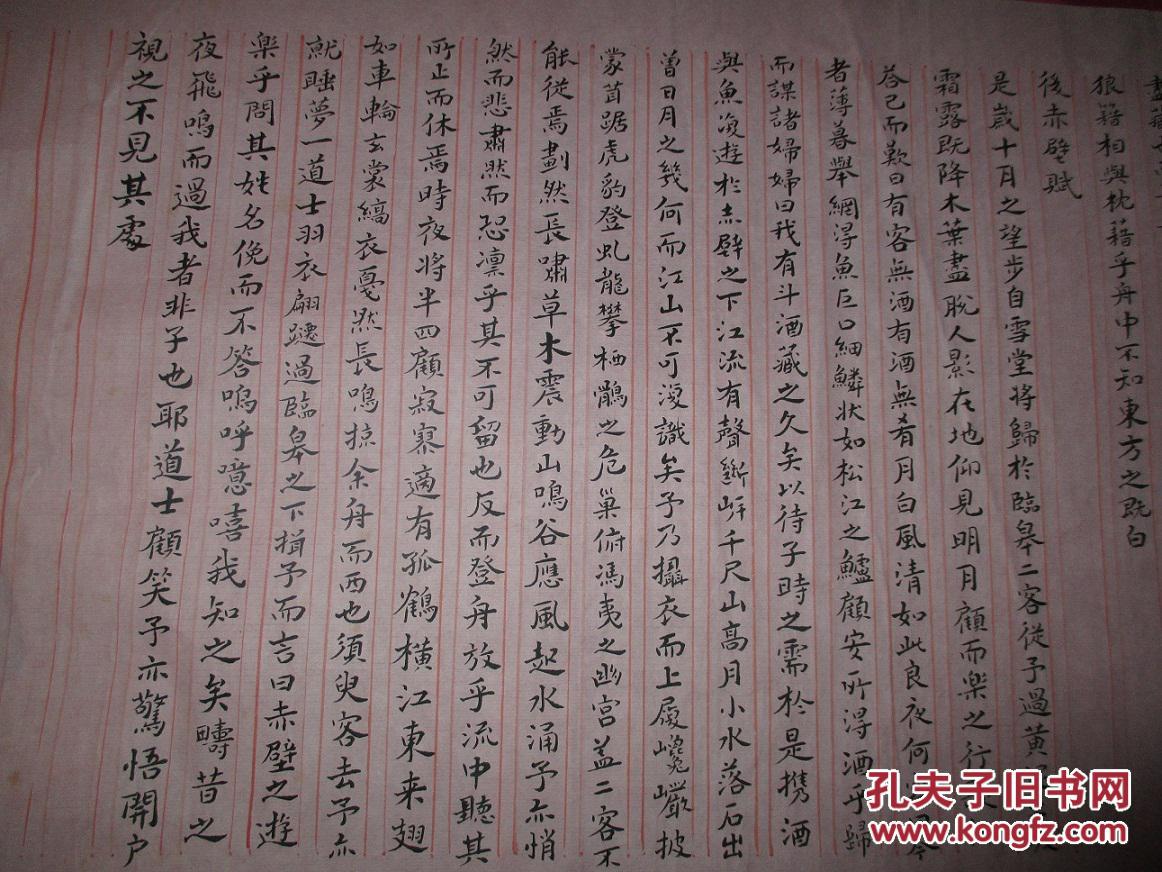 狼籍相與枕藉乎舟中不知東方之既白
後赤壁賦
是歲十月之望步自雪堂將歸於臨皋二客從予過黄
霜露既降木葉盡脫人影在地仰見明月顧而樂之行
荅已而歎曰有客無酒有酒無肴月白風清如此良夜何
者薄暮舉網得魚巨口細鱗状如松江之鱸顧安所得酒乎歸
而謀諸婦婦曰我有斗酒藏之久矣以待子時之需於是携酒
與魚復遊於赤壁之下江流有聲斷岸千尺山高月小水落石出
曾日月之幾何而江山不可復識矣予乃攝衣而上履巉巖披
蒙茸踞虎豹登虬龍攀栖鶻之危巢俯馮夷之幽宮盖二客不
能從焉劃然長嘯草木震動山鳴谷應風起水涌予亦悄
然而悲肅然而恐凛乎其不可留也反而登舟放乎流中聽其
所止而休焉時夜将半四顧寂寥適有孤鶴橫江東来翅
如車輪玄裳縞衣戛然長鳴掠余舟而西也須臾客去予亦
就睡夢一道士羽衣翩躚過臨皋之下揖予而言曰赤壁之遊
樂乎問其姓名俛而不答嗚呼噫嘻我知之矣疇昔之
夜飛鳴而過我者非子也耶道士顧笑予亦驚悟開户
視之不見其處
孔夫子旧书网
www.kongfz.com